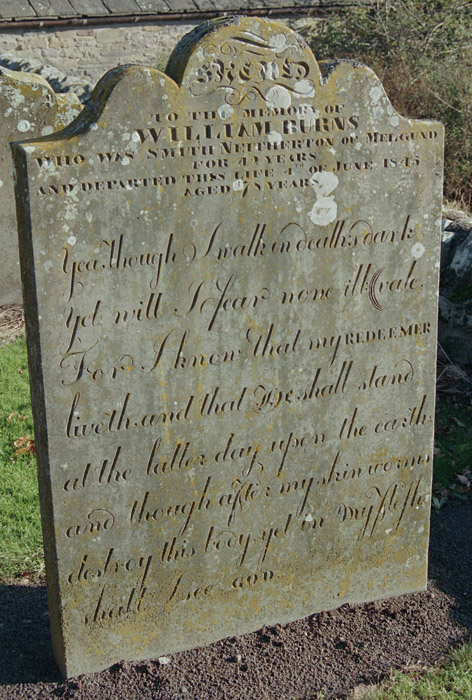 TO THE MEMORY OF
WILLIAM BURNS
WHO WAS SMITH NETHERTON OF MELGUND
FOR 42 YEARS
AND DEPARTED THIS LIFE 4TH OF JUNE 1845
AGED 78 YEARS
Yea though I walk in death's dark
Yet will I fear none ill (vale
For I know that my REDEEMER
liveth, and that He shall stand
at the latter day upon the earth,
and though after my skin worms
destroy this body, yet in my flesh
shall I see GOD.